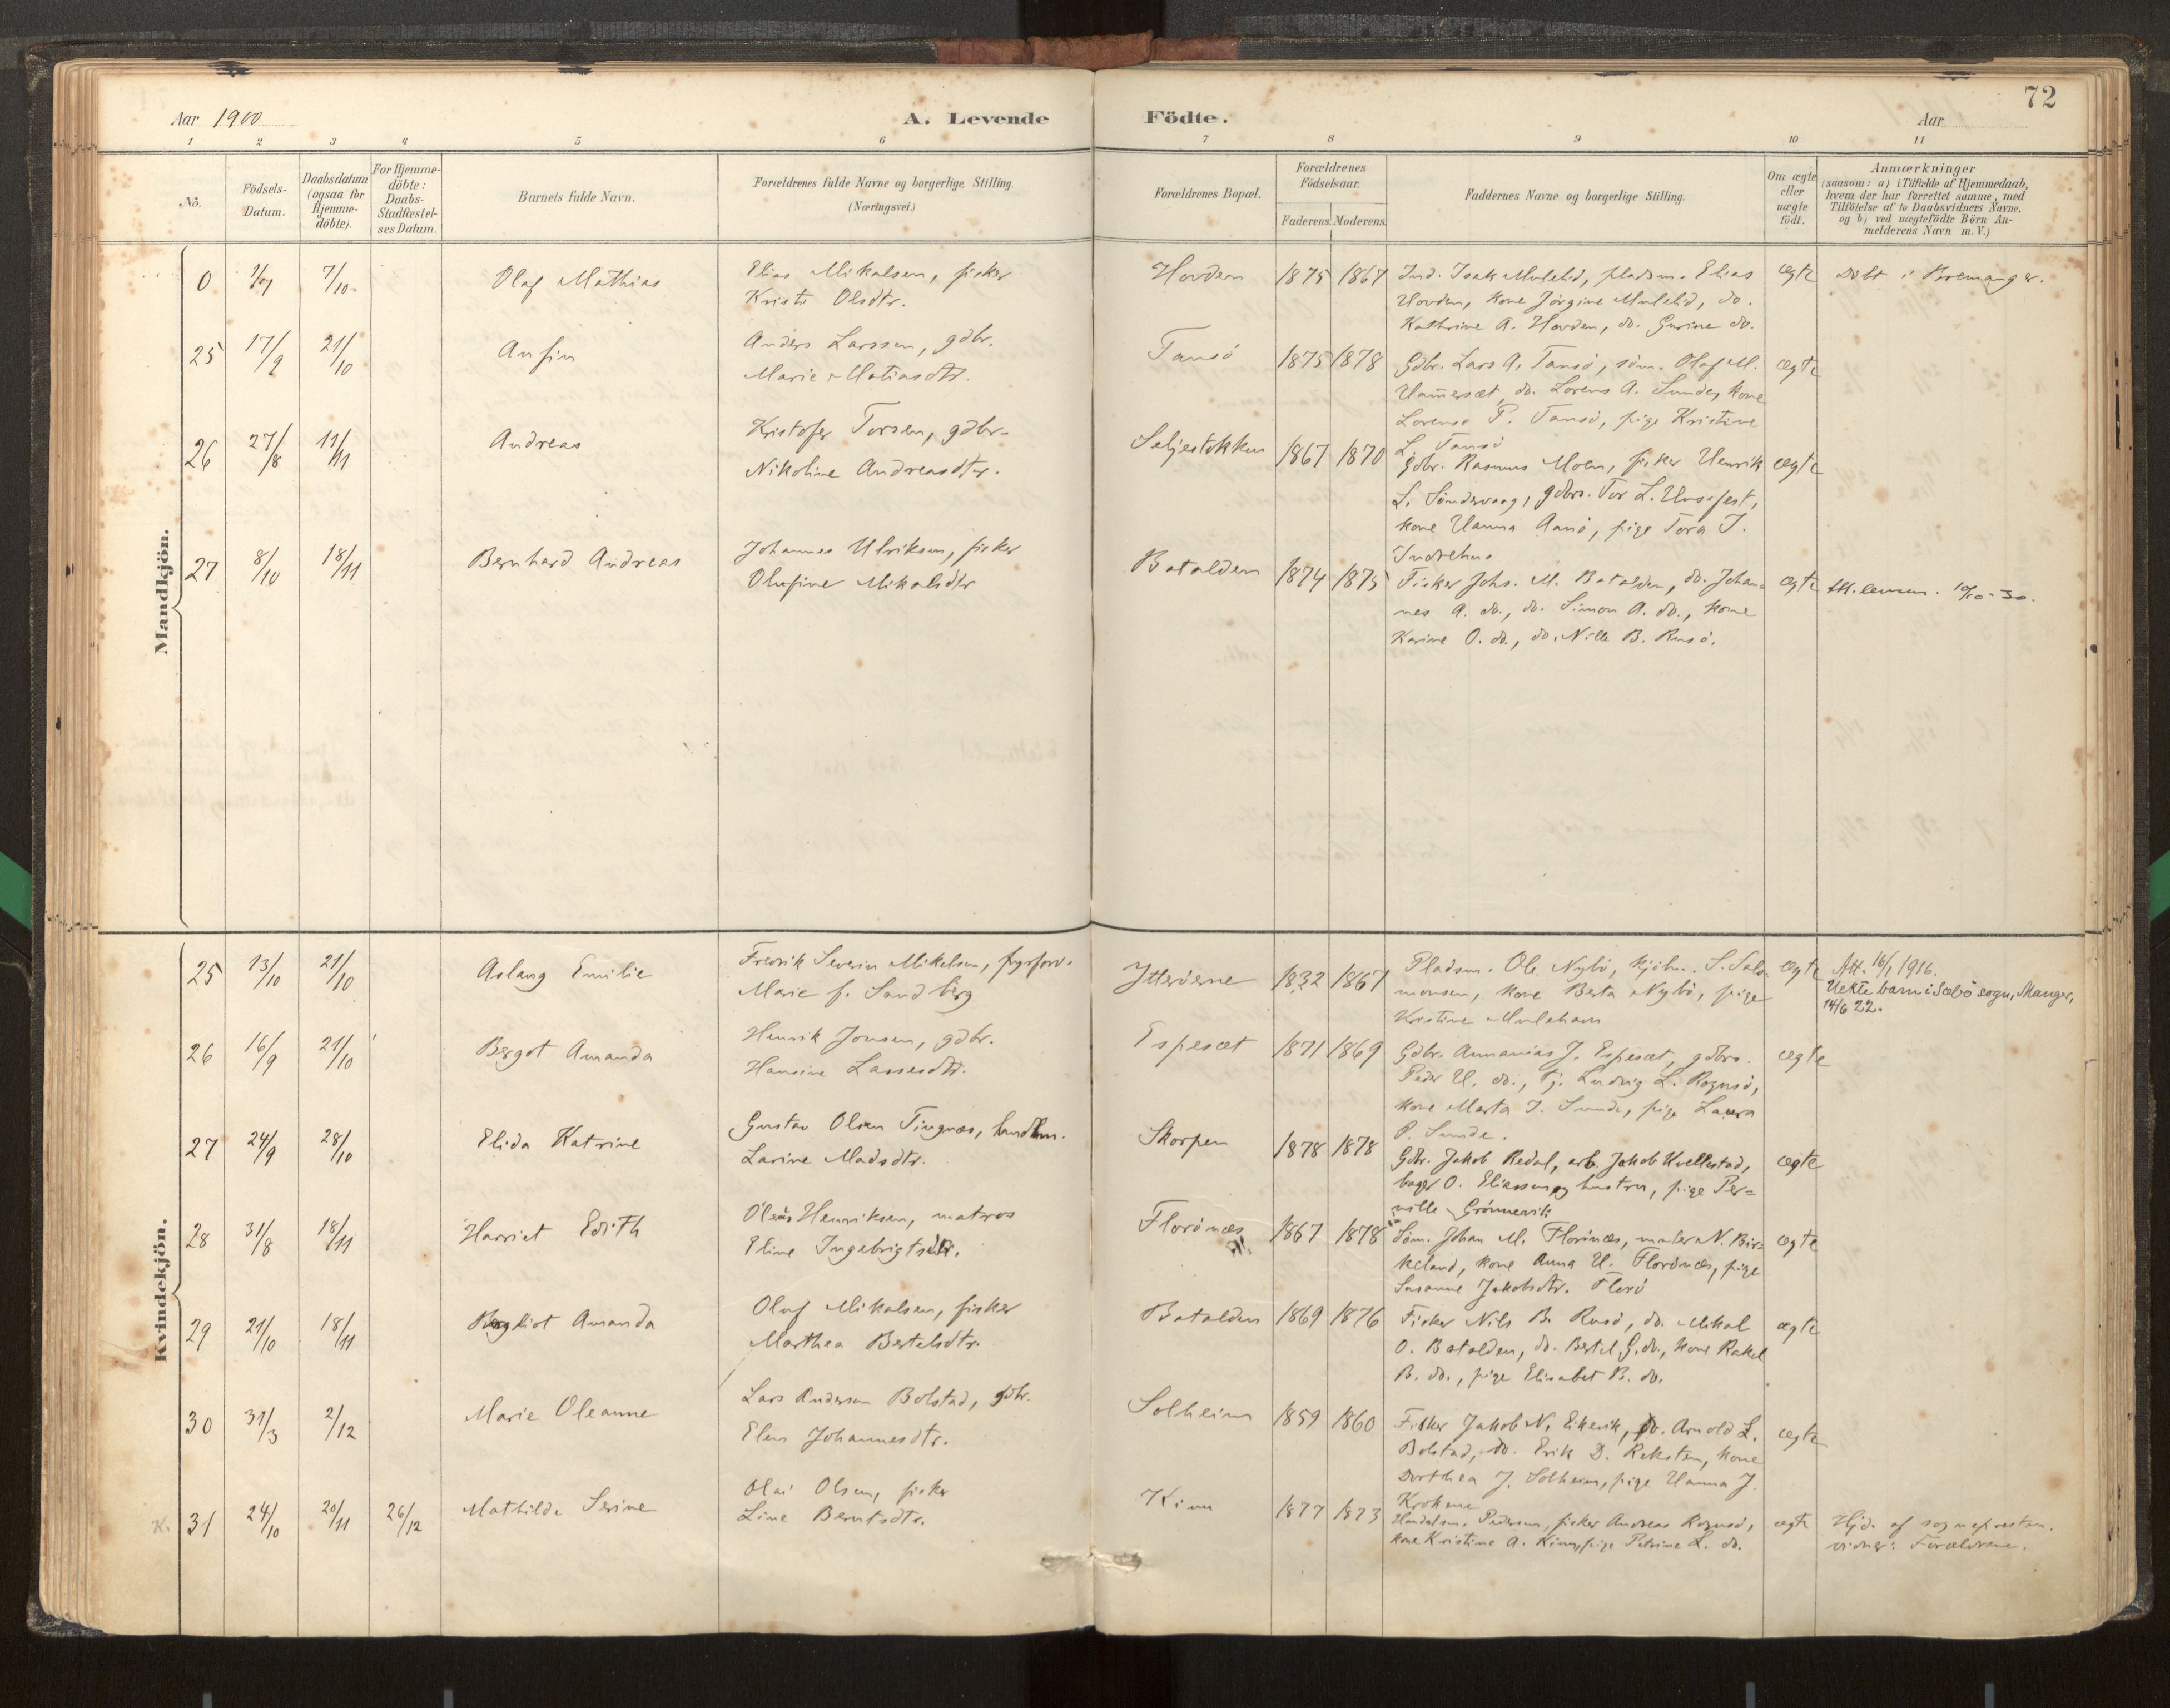 72
Aar 1900
A. Levende Födte.
Aar
1 2 3 4 5 6 7 8 9 10 11
No.
Födsels-Datum.
Daabsdatum (ogsaa for Hjemme-döbte).
For Hjemme-döbte: Daabs-Stadfæstel-ses Datum.
Barnets fulde Navn.
Forældrenes fulde Navne og borgerlige Stilling.
(Næringsvei.)
Forældrenes Bopæl.
Forældrenes Födselsaar.
Faderens. Moderens.
Faddernes Navne og borgerlige Stilling.
Om ægte eller uægte födt.
Anmærkninger
(saasom: a) i Tilfælde af Hjemmedaab,
hvem der har forrettet samme, med
Tilföielse af to Daabsvidners Navne,
og b) ved uægtefödte Börn An-
melderens Navn m. V.)
Mandkjön.
0 1/7 7/10 Olaf Mathias
Elias Mikalsen, fisker
Kristi Olsdtr.
Hovden 1875 1867
Ind. Isak Mulelid, pladsm. Elias
Hovden, kone Jørgine Mulelid, do.
Kathrine A. Hovden, do. Gurine do.
ægte
Døbt i Bremanger.
25 17/9 21/10 Anfin
Anders Larssen, gdbr.
Marie Matiasdtr.
Tansö 1875 1878
Gdbr. Lars A. Tansö, söm. Olaf M.
Hammersæt, do. Lorens A. Sunde, kone
Lorense P. Tansö, pige Kristine
L. Tansö
ægte
26 27/8 11/11 Andreas
Kristofer Torsen, gdbr.
Nikoline Andreasdtr.
Seljestokken 1867 1870
Gdbr. Rasmus Moen, fisker Henrik
L. Söndervaag, gdbrs. Tor L. Husefest,
kone Hanna Aanö, pige Tora J.
Indrehus
ægte
27 8/10 18/11 Bernhard Andreas
Johannes Ulriksen, fisker
Olufine Mikalsdtr
Batalden 1874 1875
Fisker Johs. M. Batalden, do. Johan=
nes A. do., do. Simon A. do., kone
Karine O. do., do. Nille B. Rusö.
ægte
10/10-30.
Kvindekjön.
25 13/10 21/10 Aslaug Emilie
Fredrik Severin Mikelsen, fyrforv.
Marie f. Sandberg
Ytteröerne 1832 1867
Pladsm. Ole Nybö, kjöbm. S. Salo-
monsen, kone Berta Nybö, pige
Kristine Mulehavn
ægte
Att. 16/1 1916.
Uekte barn i Sæbö sogn, Manger,
14/6 22.
26 16/9 21/10 Bergot Amanda
Henrik Jonsen, gdbr.
Hansine Lassesdtr.
Espeset 1871 1869
Gdbr. Annanias J. Espeset, gdbrs.
Peder H. do., tj. Ludvig L. Rognsö,
kone Marta J. Sunde, pige Laura
P. Sunde.
ægte
27 24/9 28/10 Elida Katrine
Gustav Olsen Tingnæs, handlm.
Larine Madsdtr.
Skorpen 1878 1878
Gdbr. Jakob Redal, arb. Jakob Kvellestad,
bager O. Eliassen og hustru, pige Per=
nille Grönnevik
ægte
28 31/8 18/11 Harriet Edith
Oleas Henriksen, matros
Eline Ingebrigtsdtr.
Florönæs 1867 1878
Söm. Johan M. Florönæs, maler N. Bir=
keland, kone Anna H. Florönæs, pige
Susanne Jakobsdtr. Florö
ægte
29 21/10 18/11 Bergliot Amanda
Oluf Mikalsen, fisker
Marthea Bertelsdtr.
Batalden 1869 1876
Fisker Nils B. Rusö, do. Mikal
O. Batalden, do. Bertel G. do., kone Rakel
B. do., pige Elisabet B. do.
ægte
30 31/3 2/12 Marie Oleanne
Lars Andersen Bolstad, gdbr.
Elen Johannesdtr.
Solheim 1859 1860
Fisker Jakob N. Eikevik, do. Arnold L.
Bolstad, do. Erik D. Reksten, kone
Dorthea J. Solheim, pige Hanna J.
Krokene
ægte
K. 31 24/10 20/11 26/12 Mathilde Serine
Olai Olsen, fisker
Line Berntsdtr.
Kinn 1877 1873
Handelsm. Pedersen, fisker Andreas Rognsö,
kone Kristine A. Kinn, pige Petrine L. do.
ægte
Hjd. af sognepresten.
vidner: Forældrene.